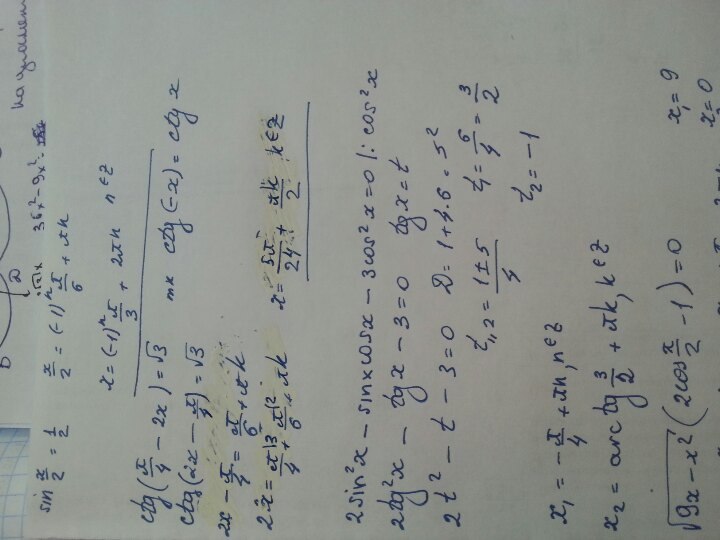 sin x/2 = 1/2
x/2 = (-1)ⁿ π/6 + πn
36x² - 9x²
x = (-1)ⁿ π/3 + 2πn n∈Z
ctg(π/4 - 2x) = √3 тк ctg(-x) = ctg x
ctg(2x - π/4) = √3
2x - π/4 = π/6 + πk
2x = π\3/4 + π\2/6 + πk x = 5π/24 + πk/2 k∈Z
2sin²x - sinxcosx - 3cos²x = 0 |: cos²x
2tg²x - tgx - 3 = 0 tgx = t
2t² - t - 3 = 0 D = 1 + 4·6 = 5²
t₁,₂ = 1±5/4 t₁ = 6/4 = 3/2
t₂ = -1
x₁ = -π/4 + πn, n∈Z
x₂ = arctg 3/2 + πk, k∈Z
√9x - x² (2cos x/2 - 1) = 0 x₁ = 9
x₂ = 0